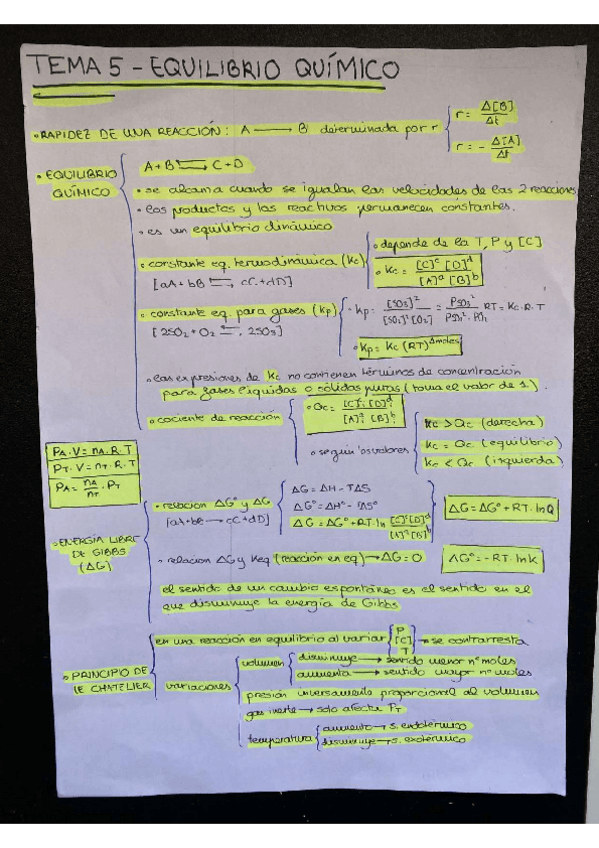 TEMA 5 - EQUILIBRIO QUÍMICO
• RAPIDEZ DE UNA REACCIÓN: A ⟶ B determinada por r
r = Δ[B]/Δt
r = - Δ[A]/Δt
• EQUILIBRIO QUÍMICO
A + B ⇆ C + D
• se alcanza cuando se igualan las velocidades de las 2 reacciones
• los productos y los reactivos permanecen constantes.
• es un equilibrio dinámico
• constante eq. termodinámica (Kc)
[aA+bB ⇆ cC+dD]
• depende de la T, P y [C]
• Kc = [C]^c [D]^d / [A]^a [B]^b
• constante eq. para gases (Kp)
[2SO₂ + O₂ ⇆ 2SO₃]
• Kp = [SO₃]² / [SO₂]² [O₂] = P_SO₃² / P_SO₂² · P_O₂ RT = Kc·R·T
• Kp = Kc (RT)^Δmoles
• las expresiones de Kc no contienen términos de concentración
para gases líquidas o sólidas puras (toma el valor de 1).
• cociente de reacción
• Qc = [C]^c [D]^d / [A]^a [B]^b
• según los valores
Kc > Qc (derecha)
Kc = Qc (equilibrio)
Kc < Qc (izquierda)
P_A · V = n_A · R · T
P_T · V = n_T · R · T
P_A = n_A/n_T · P_T
• ENERGÍA LIBRE DE GIBBS (ΔG)
• relacion ΔG° y ΔG
[aA+bB ⟶ cC+dD]
ΔG = ΔH - TΔS
ΔG° = ΔH° - TΔS°
ΔG = ΔG° + RT·ln [C]^c[D]^d / [A]^a[B]^b
ΔG = ΔG° + RT·lnQ
• relacion ΔG y Keq (reacción en eq) ⟶ ΔG = 0
ΔG° = -RT·lnK
el sentido de un cambio espontáneo es el sentido en el
que disminuye la energía de Gibbs
• PRINCIPIO DE LE CHATELIER
en una reacción en equilibrio al variar { P [C] T } → se contrarresta
variaciones
volumen
disminuye → sentido menor nº moles
aumenta → sentido mayor nº moles
presión inversamente proporcional al volumen
gas inerte → solo afecta P_T
temperatura
aumento → s. endotérmico
disminuye → s. exotérmico